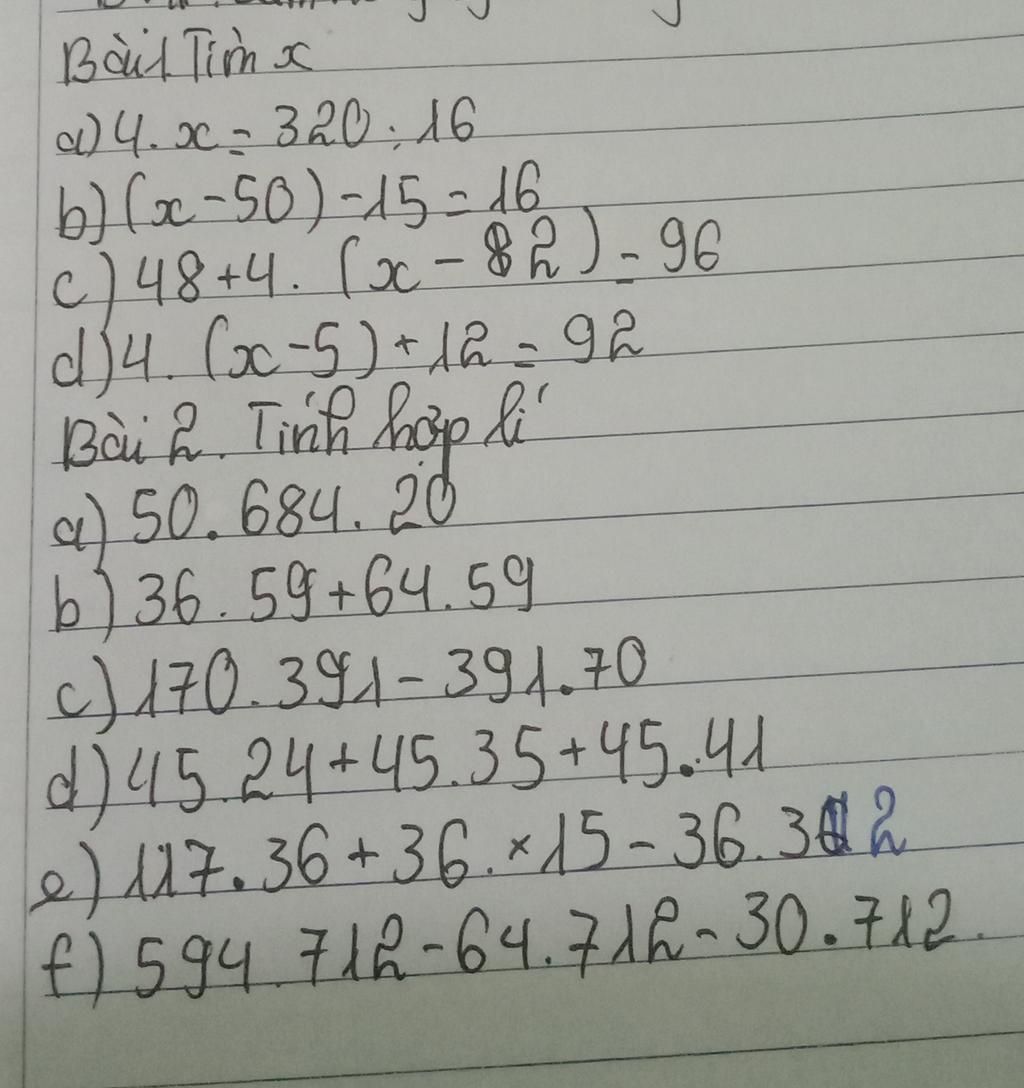 Bài 1 Tìm x
a) 4. x = 320 : 16
b) (x - 50) - 15 = 16
c) 48 + 4. (x - 82) = 96
d) 4. (x - 5) + 12 = 92
Bài 2. Tính hợp lí
a) 50. 684. 20
b) 36. 59 + 64. 59
c) 170. 391 - 391. 70
d) 45. 24 + 45. 35 + 45. 41
e) 117. 36 + 36. × 15 - 36. 32
f) 594. 712 - 64. 712 - 30. 712.